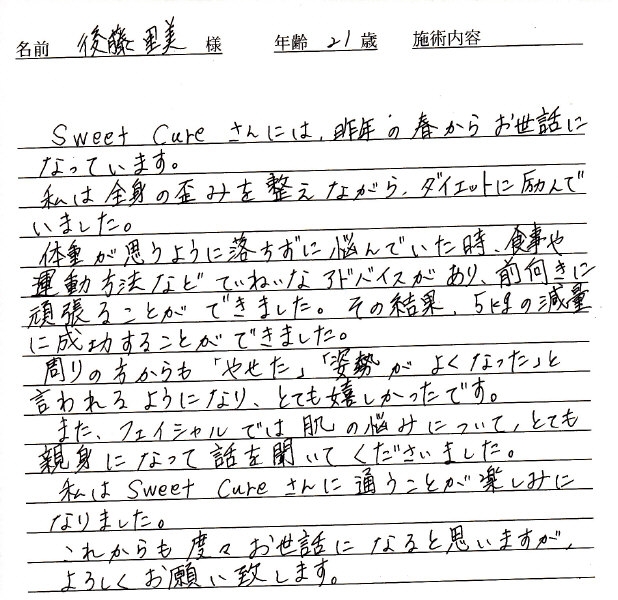 名前 後藤里美 様 年齢 21 歳 施術内容
Sweet Cure さんには、昨年の春からお世話に
なっています。
私は全身の歪みを整えながら、ダイエットに励んで
いました。
体重が思うように落ちずに悩んでいた時、食事や
運動方法などていねいなアドバイスがあり、前向きに
頑張ることができました。その結果、5kgの減量
に成功することができました。
周りの方からも「やせた」「姿勢がよくなった」と
言われるようになり、とても嬉しかったです。
また、フェイシャルでは肌の悩みについて、とても
親身になって話を聞いてくださいました。
私は Sweet Cure さんに通うことが楽しみに
なりました。
これからも度々お世話になると思いますが、
よろしくお願い致します。